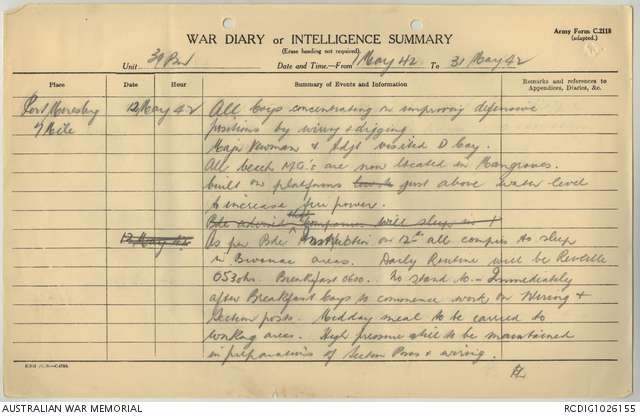 Army Form C.2118
(adapted.)
WAR DIARY or INTELLIGENCE SUMMARY
(Erase heading not required).
Unit 39 Bn Date and Time.—From 1 May 42 To 31 May 42
Place Date Hour Summary of Events and Information Remarks and references to Appendices, Diaries, &c.
Port Moresby 12 May 42 All Coys concentrating on improving defensive
7 Mile positions by wiring & digging
Major Newman & Adjt visited D Coy.
All beach MG's are now located in Mangroves.
built on platforms just above water level
to increase fire power.
Bde advised that Companies will sleep in
12 May 42 As per Bde Instruction on 12th all compys to sleep
in Bivouac areas. Daily Routine will be Reveille
0530hr. Breakfast 0600. No stand to - Immediately
after Breakfast Coys to commence work on Wiring &
Section posts. Midday meal to be carried to
working areas. High pressure still to be maintained
in preparations of Section Posns & wiring.
AUSTRALIAN WAR MEMORIAL
RCDIG1026155